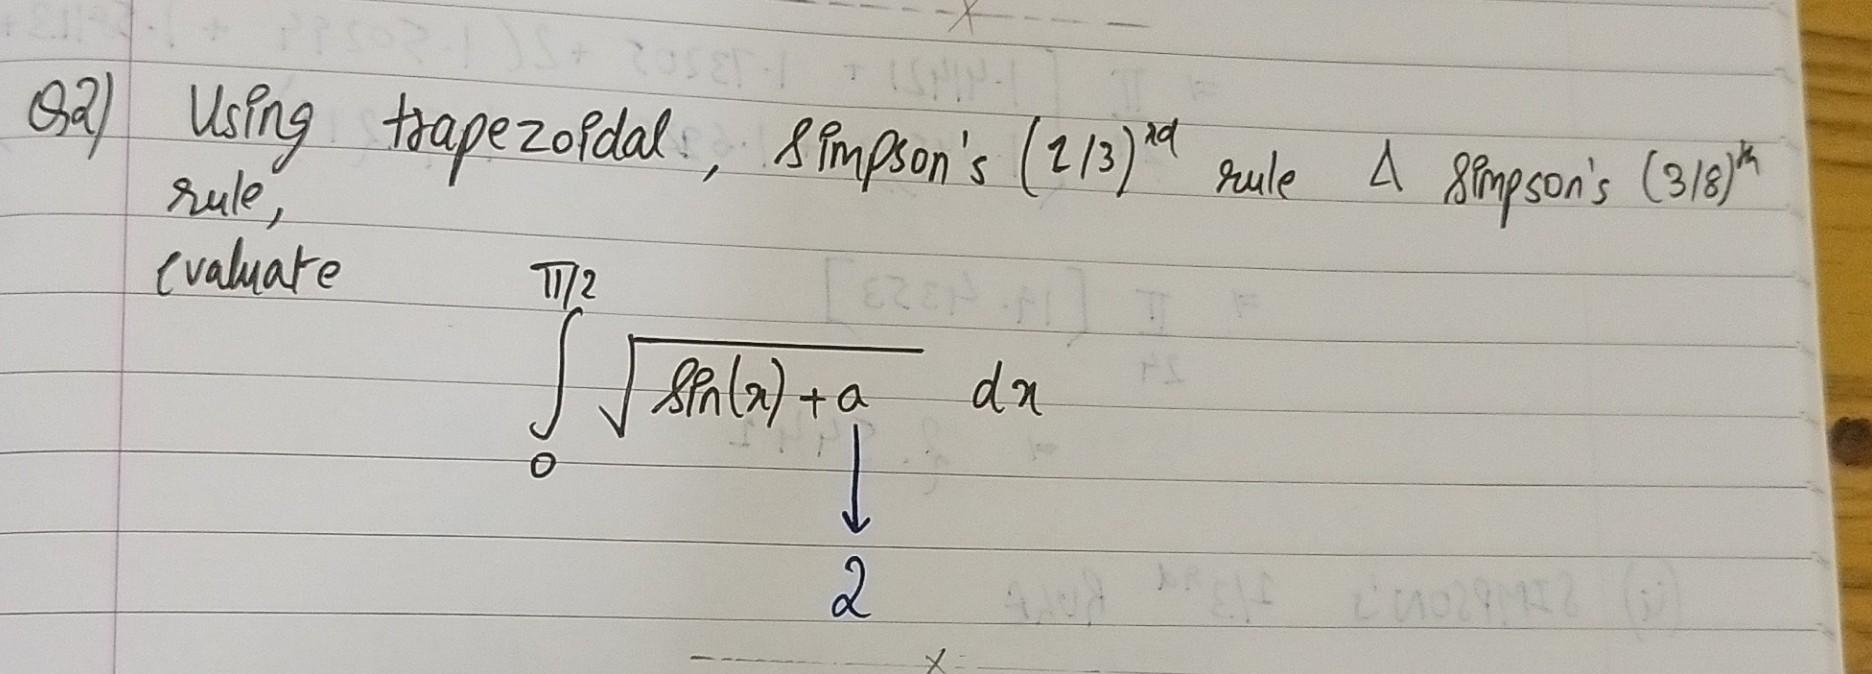 Q2) Using trapezoidal, Simpson's (1/3)rd rule & Simpson's (3/8)th
rule,
evaluate
π/2
∫ √sin(x) + a dx
0
↓
2
x